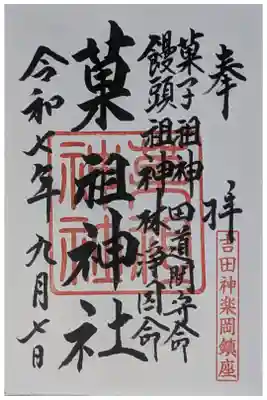 奉拝
菓子祖神 田道間守命
饅頭祖神 林浄因命
菓祖神社
令和七年九月七日
吉田神楽岡鎮座
菓祖神社